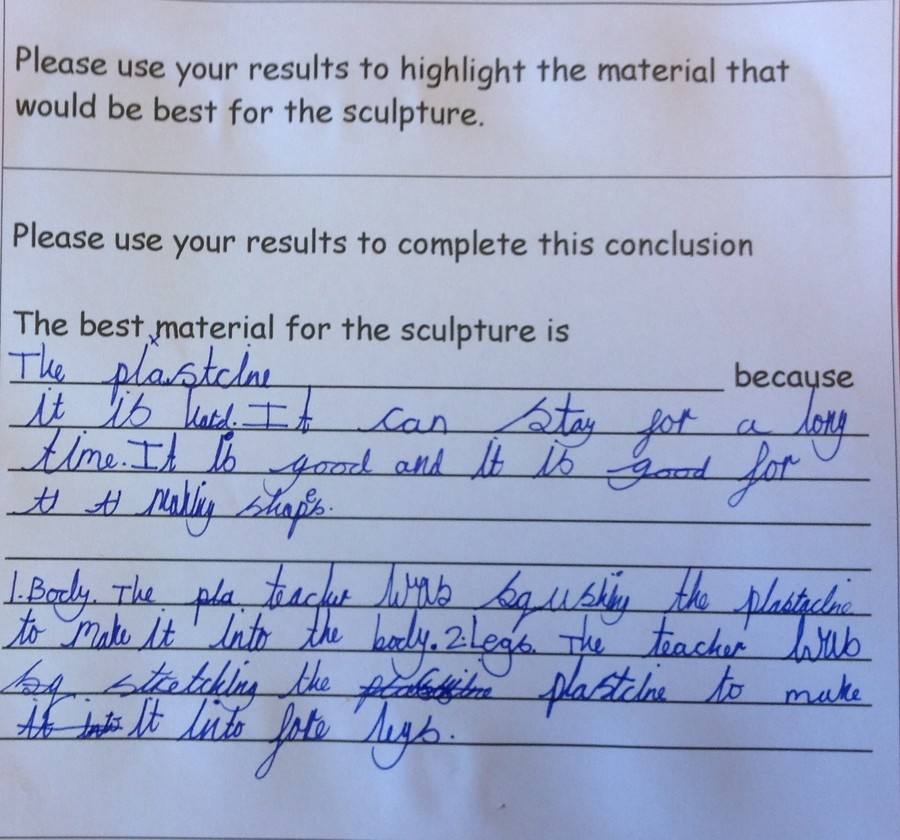 Please use your results to highlight the material that
would be best for the sculpture.
Please use your results to complete this conclusion
The best material for the sculpture is
The plastcine because
it is hard. It can stay for a long
time. It is good and it is good for
making shapes.
1. Body. The pla teacher was squshing the plastacline
to make it into the body. 2. Legs. The teacher was
sq stretching the plastcine to make
it into it into fore legs.